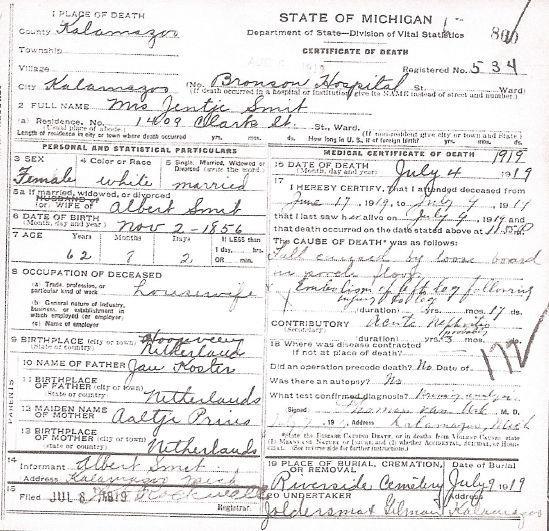 1 PLACE OF DEATH
STATE OF MICHIGAN
County Kalamazoo
Department of State—Division of Vital Statistics
Township
CERTIFICATE OF DEATH
Village
Registered No. 534
City Kalamazoo (No. Bronson Hospital St. Ward)
(If death occurred in a hospital or institution, give its NAME instead of street and number.)
2 FULL NAME Mrs Jentje Smit
(a) Residence. No. 1409 Clark St. St., Ward.
(Usual place of abode) (If non-resident give city or town and State)
Length of residence in city or town where death occurred yrs. mos. ds. How long in U. S., if of foreign birth? yrs. mos. ds.
PERSONAL AND STATISTICAL PARTICULARS
3 SEX Female
4 Color or Race white
5 Single, Married, Widowed or Divorced (write the word) married
5a If married, widowed, or divorced
HUSBAND of
(or) WIFE of Albert Smit
6 DATE OF BIRTH
(Month, day and year) Nov 2 - 1856
7 AGE Years Months Days If LESS than
1 day, hrs.
62 8 2 OR min.
8 OCCUPATION OF DECEASED
(a) Trade, profession, or
particular kind of work housewife
(b) General nature of industry,
business, or establishment in
which employed (or employer)
(c) Name of employer
9 BIRTHPLACE (city or town)
(State or country) Netherlands
10 NAME OF FATHER Jan Koster
PARENTS
11 BIRTHPLACE
OF FATHER (city or town)
(State or country) Netherlands
12 MAIDEN NAME
OF MOTHER Aaltje Prins
13 BIRTHPLACE
OF MOTHER (city or town)
(state or country) Netherlands
14
Informant Albert Smit
Address Kalamazoo Mich
15
Filed JUL 8 1919 Rockwell
Registrar.
MEDICAL CERTIFICATE OF DEATH 1919
16 DATE OF DEATH
(Month, day and year) July 4 1919
17
I HEREBY CERTIFY, That I attended deceased from
June 17, 1919, to July
that I last saw her alive on July
and that death occurred on the date stated above at
The CAUSE OF DEATH* was as follows:
Fall caused by loose board
in porch floor
Embolism of left leg following
injury to leg
(duration) yrs. mos. 17 ds.
CONTRIBUTORY Acute Nephritis
(Secondary) (probably)
(duration) yrs. 3 mos. ds.
18 Where was disease contracted
if not at place of death?
172
Did an operation precede death? No Date of
Was there an autopsy? No
What test confirmed diagnosis?
Signed M. D.
Address Kalamazoo, Mich
*State the Disease Causing Death, or in deaths from Violent Causes state
(1) Means and Nature of Injury, and (2) whether Accidental, Suicidal, or Homicidal.
(See reverse side for further instructions).
19 PLACE OF BURIAL, CREMATION, OR REMOVAL
Date of Burial
Riverside Cemetery July 9 1919
20 UNDERTAKER
Gilman Kalamazoo